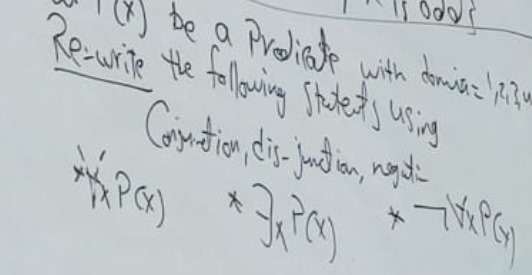 P(x) be a Predicate with domain = 1,2,3,4
Re-write the following Statents using
Conjunction, dis-junction, negati
* ∀x P(x) * ∃x P(x) * ¬∀x P(x)